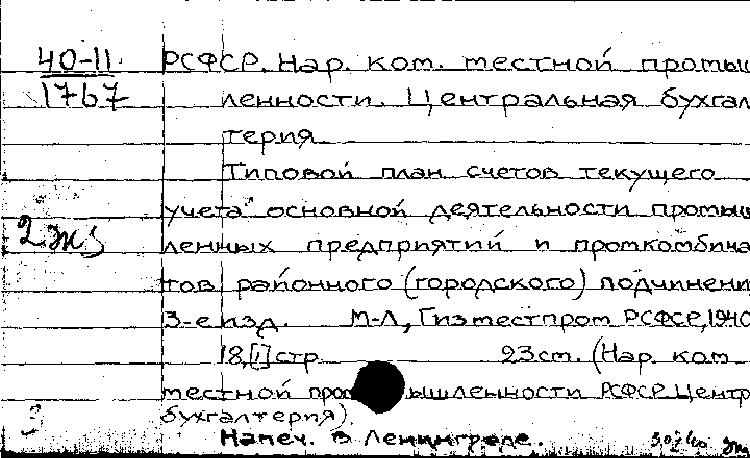 40-11.
1767
РСФСР. Нар. ком. местной промыш
ленности. Центральная бухгал
терия
Типовой план счетов текущего
учета основной деятельности промыш
2
ленных предприятий и промкомбина
тов районного (городского) подчинени
3-е изд. М-Л, Гизместпром РСФСР, 1940
18,[1] стр 23 см. (Нар. ком
местной промышленности РСФСР. Центр
бухгалтерия).
3
Напеч. в Ленинграде.